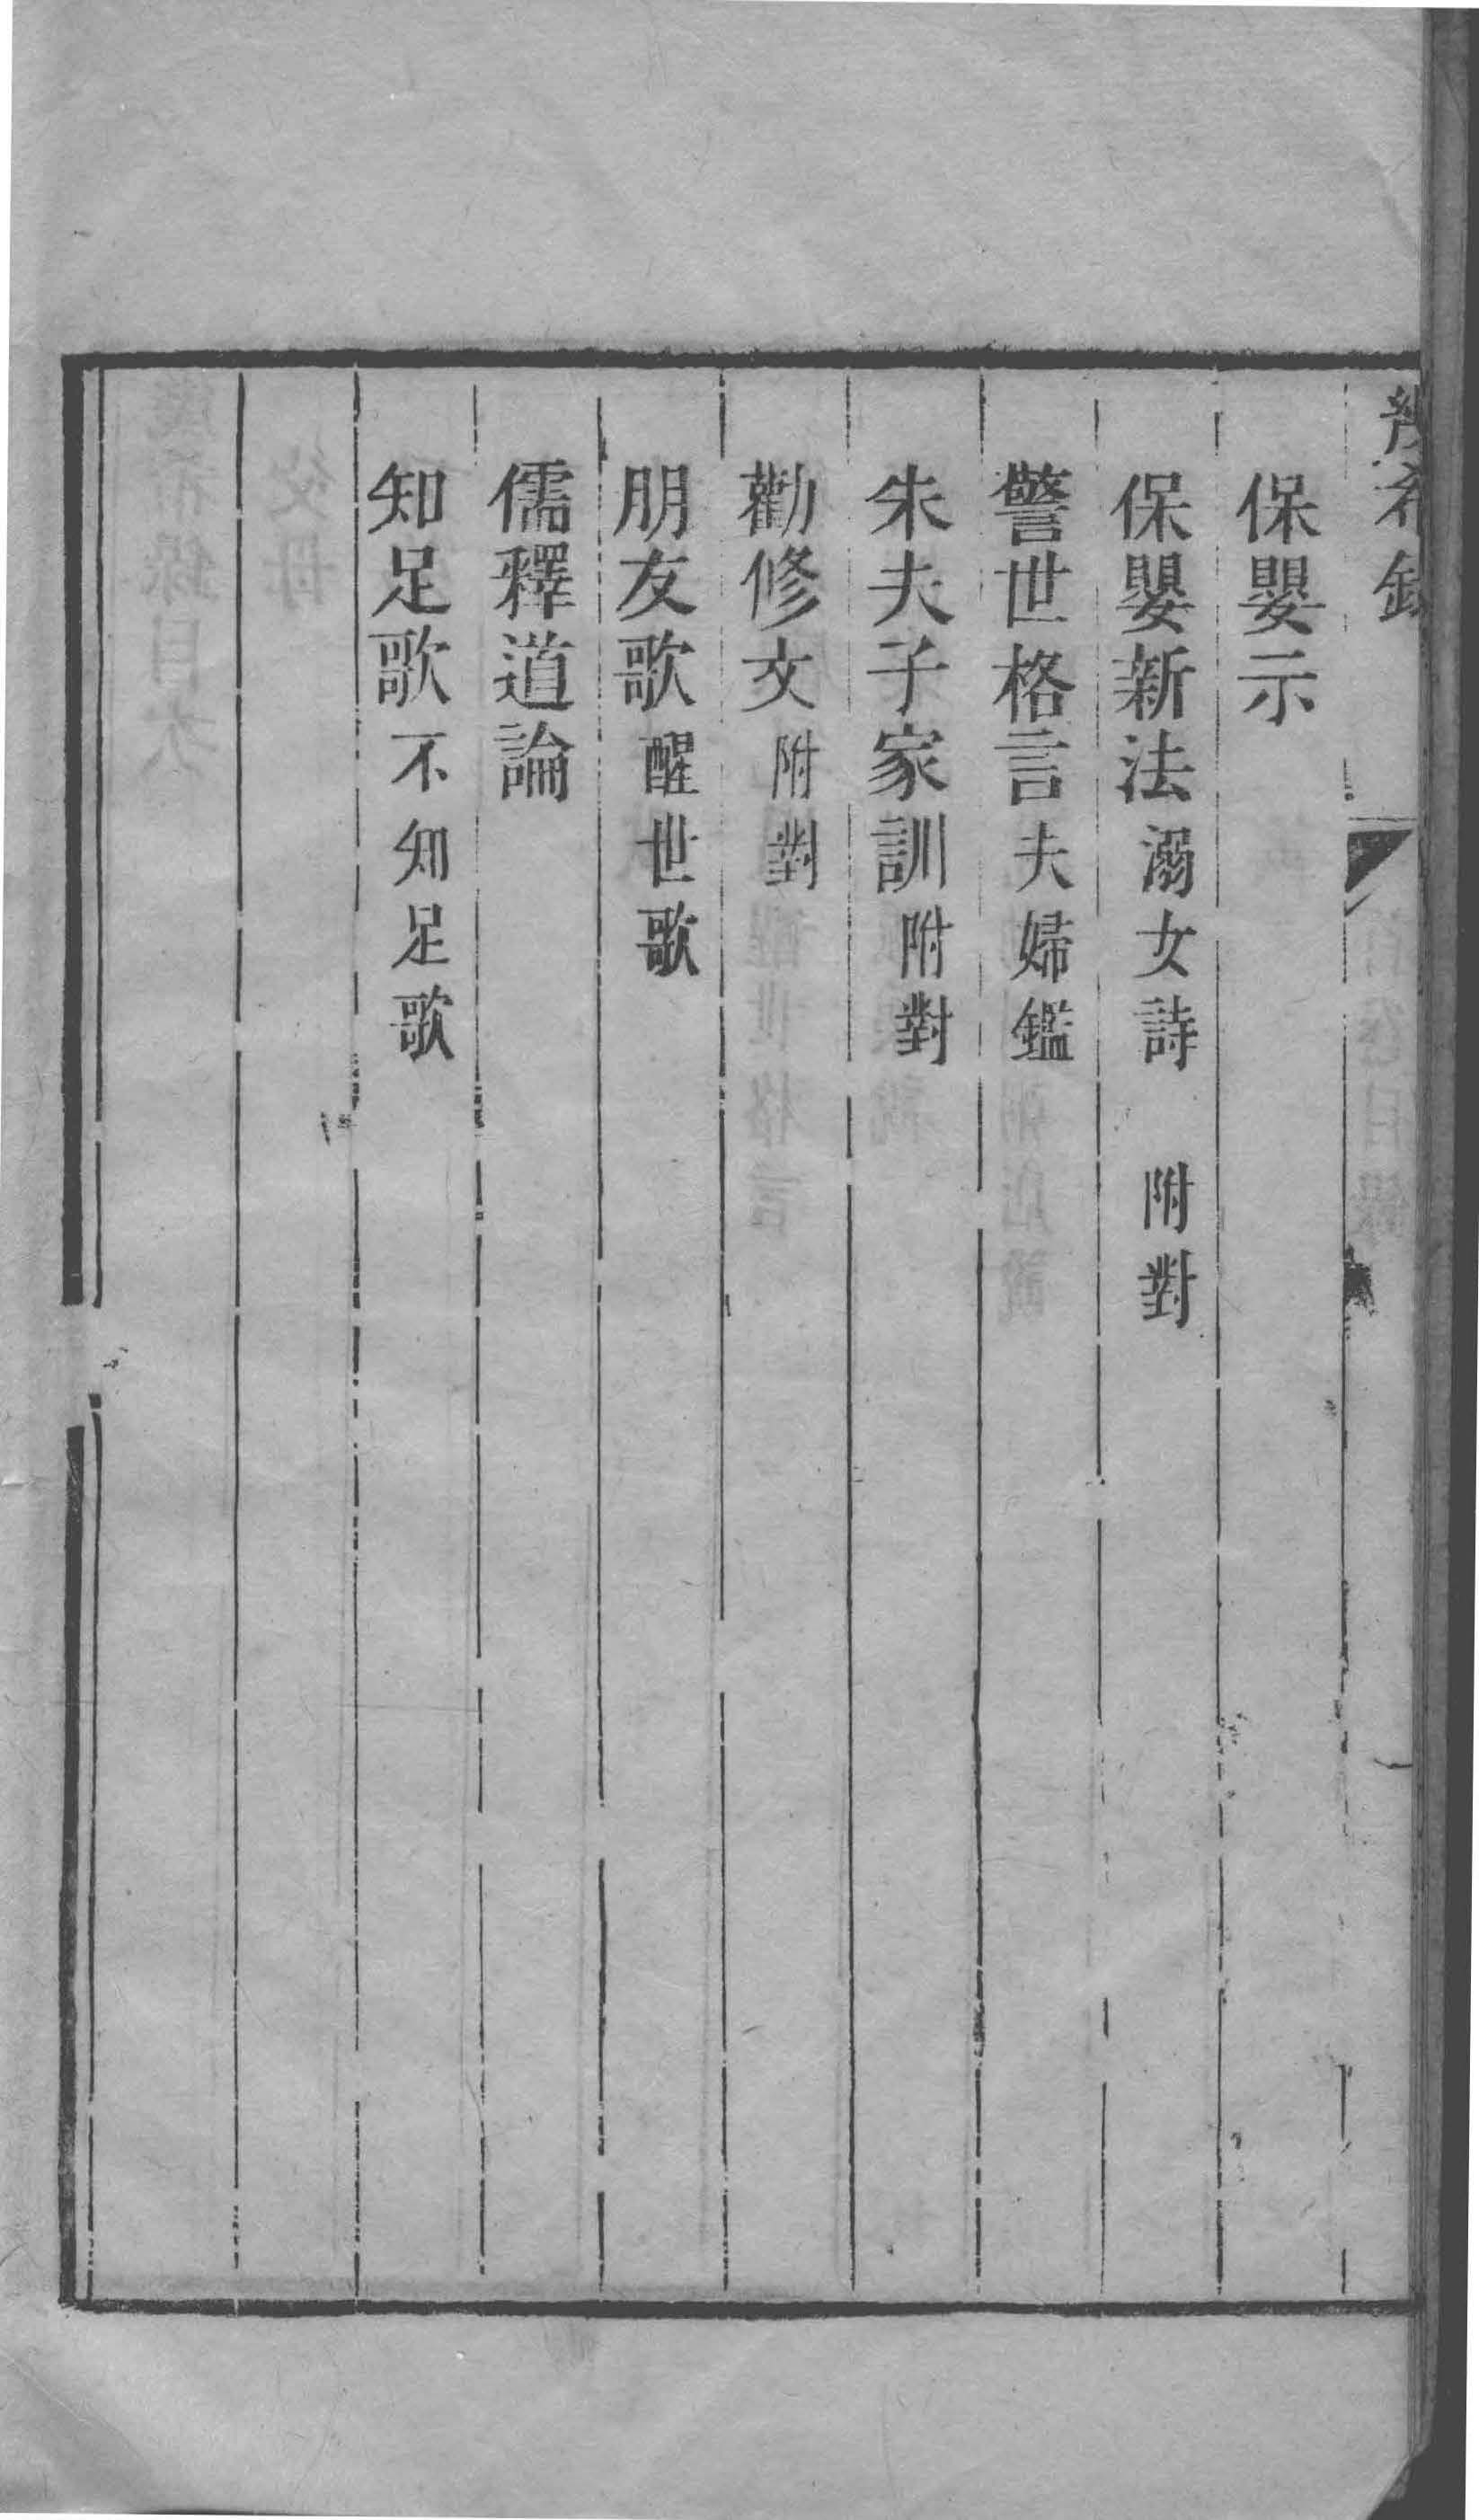 保嬰示
保嬰新法 溺女詩 附對
警世格言 夫婦鑑
朱夫子家訓 附對
勸修文 附對
朋友歌 醒世歌
儒釋道論
知足歌 不知足歌